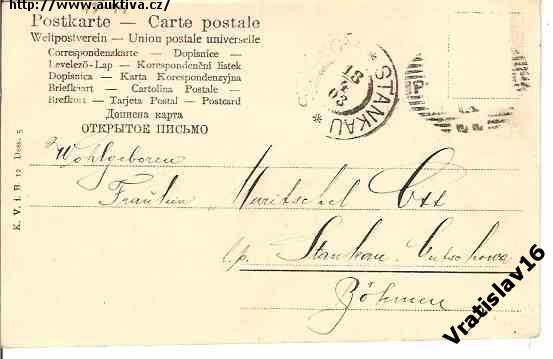 www.auktiva.cz/
Postkarte — Carte postale
Weltpostverein — Union postale universelle
Correspondenzkarte — Dopisnice —
Levelező-Lap — Korespondenční lístek
Dopisnica — Karta Korespondenzyjna
Briefkort — Cartolina Postale —
Brefkort — Tarjeta Postal — Postcard
Дописна карта
ОТКРЫТОЕ ПИСЬМО
STANKAU
18
03
K. V. i. B. 12 Dess. 5
Wohlgeboren
Fräulein Maritschel Ott
l.p. Stankau
Böhmen
Vratislav16